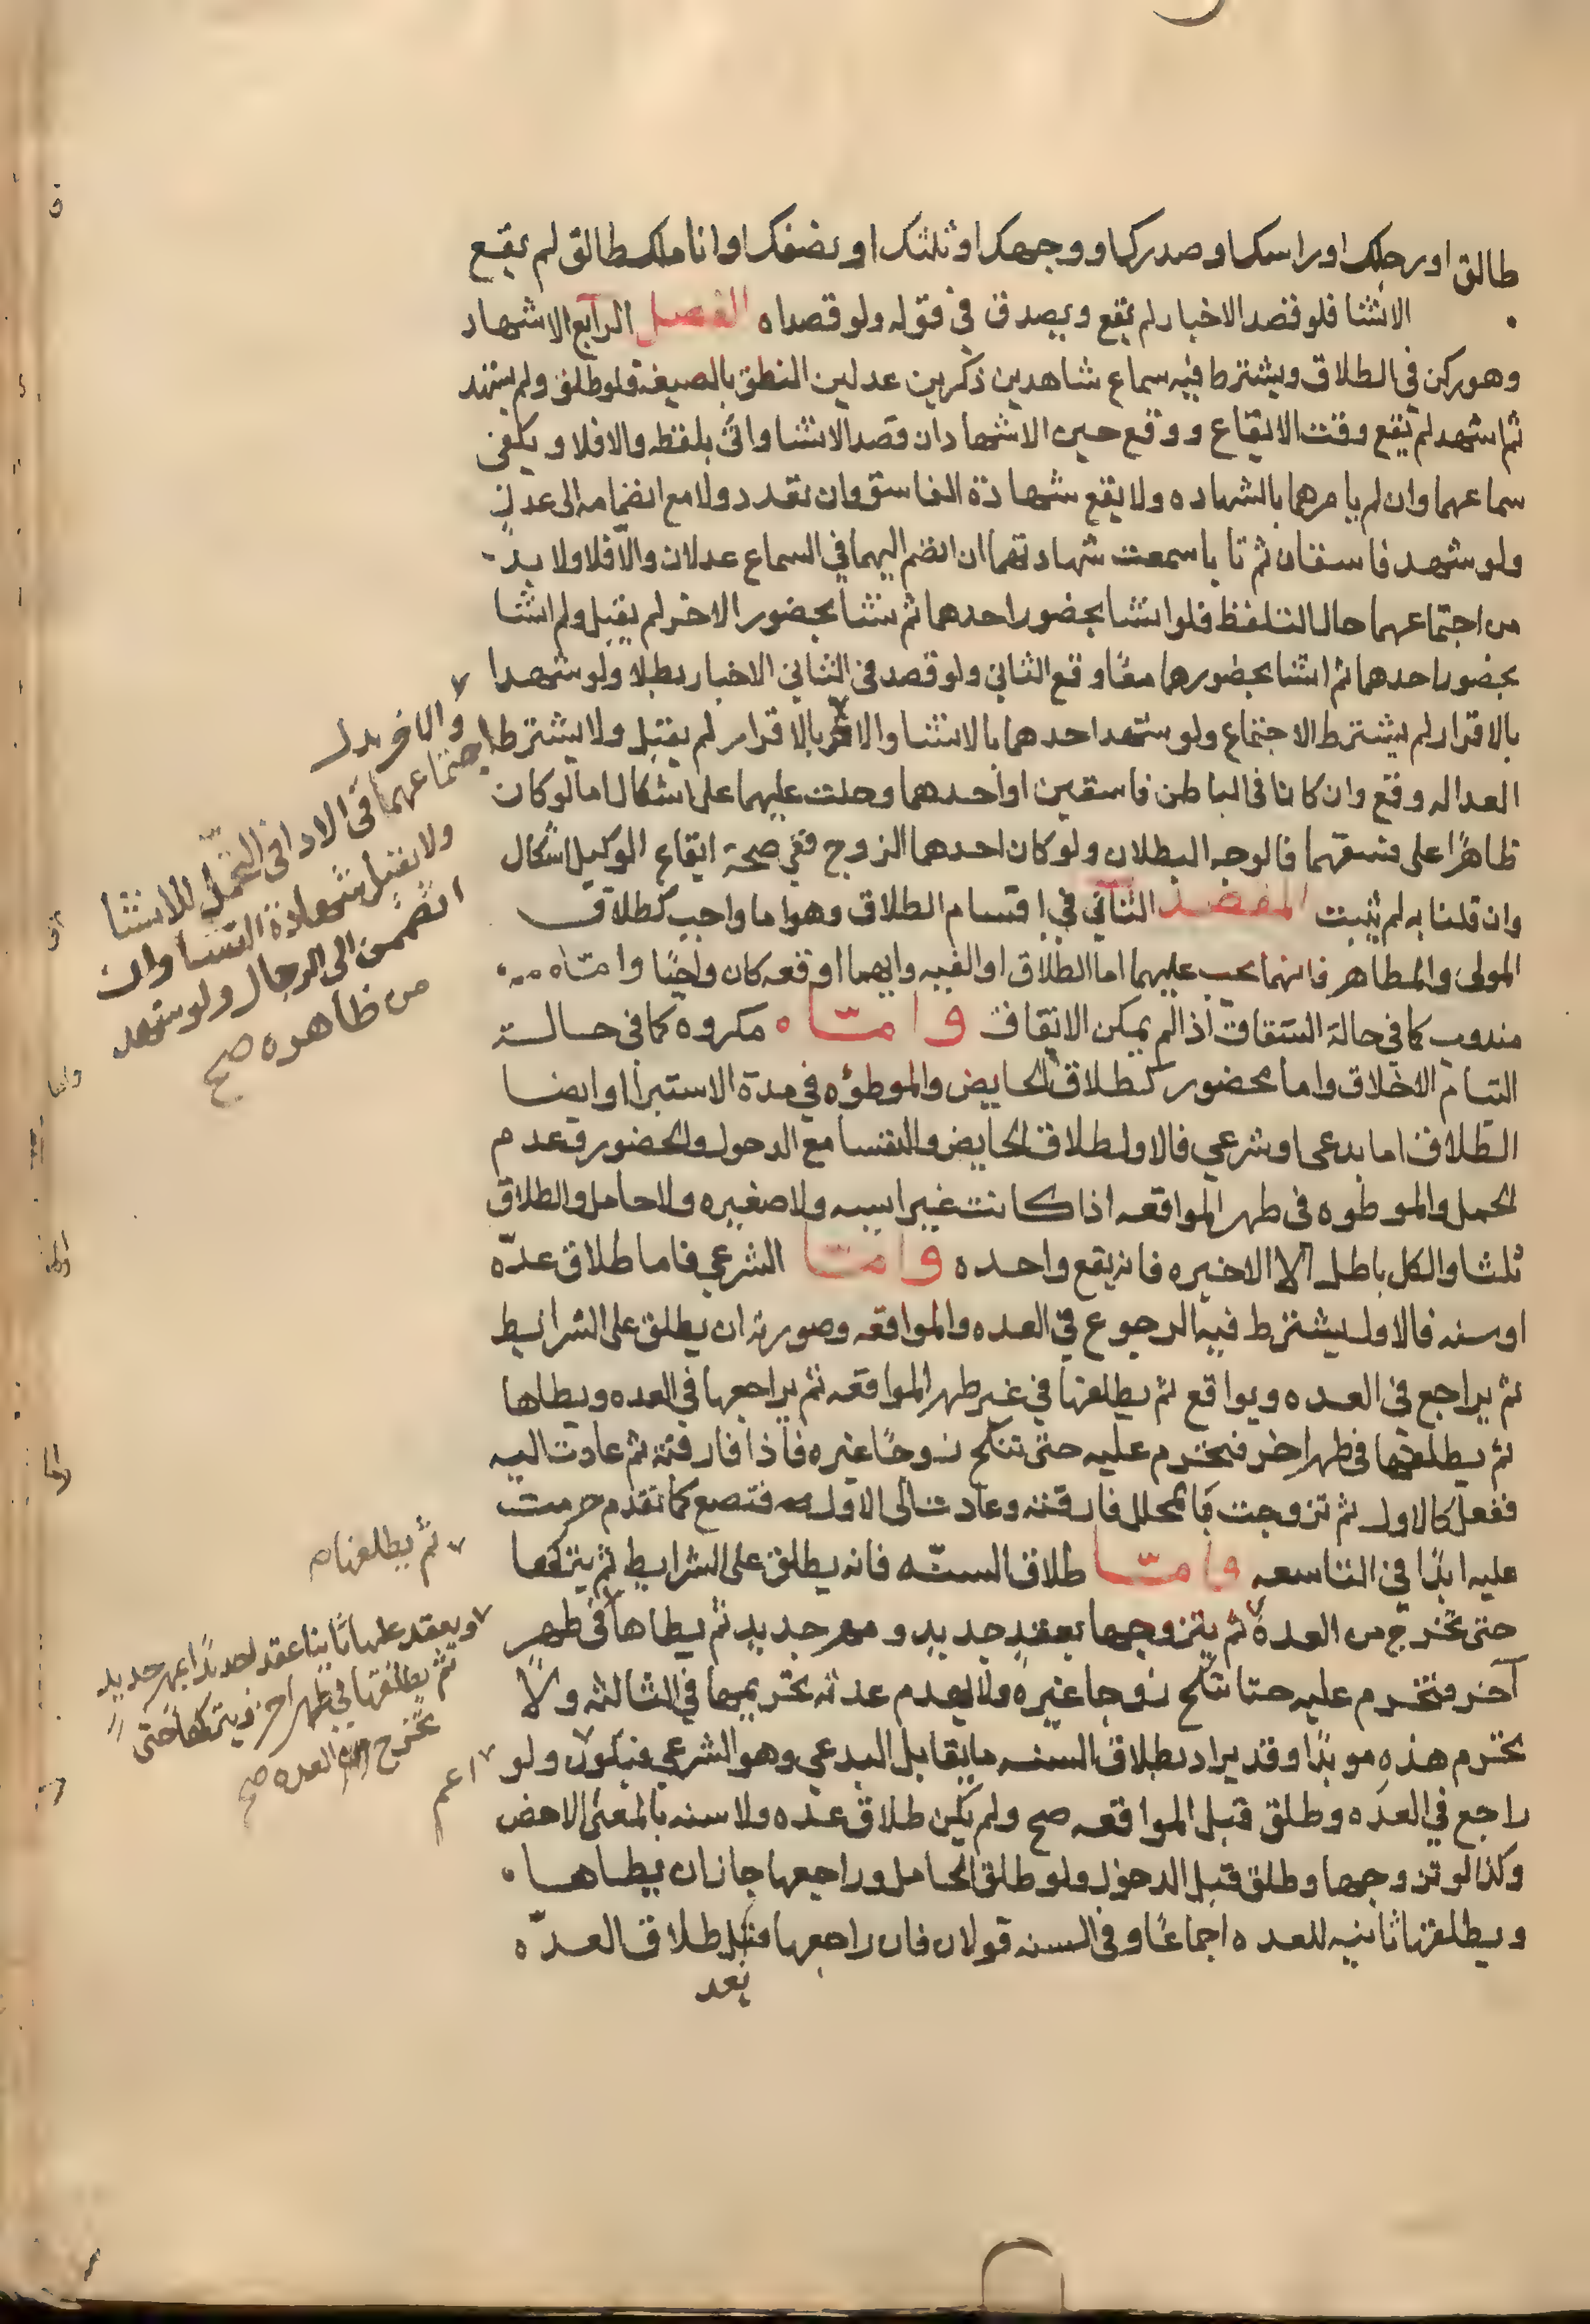 طالق او رجلك او راسك او صدرك او وجهك او ثلثك او نصفك او انا ملك طالق لم يقع
الانشا فلو قصد الاخبار لم يقع ويصدق في قوله ولو قصداه الفصل الرابع الاشهاد
وهو ركن في الطلاق ويشترط فيه سماع شاهدين ذكرين عدلين النطق بالصيغة فلو طلق ولم يشهد
ثم اشهد لم يقع وقت الايقاع ووقع حين الاشهاد ان قصد الانشا واتى بلفظه والا فلا ويكفى
سماعهما وان لم يامرهما بالشهاده ولا يقع شهادة الفاسق وان تعدد ولا مع انضمامه الى عدلٍ
ولو شهد فاسقان ثم تابا سمعت شهادتهما ان انضم اليهما في السماع عدلان والا فلا ولا بد
من اجتماعهما حال التلفظ فلو انشا بحضور احدهما ثم نشا بحضور الاخر لم يقبل ولم انشا
بحضور احدهما ثم انشا بحضورهما معًا وقع الثاني ولو قصد في الثاني الاخبار بطلا ولو شهدا
بالاقرار لم يشترط الاجتماع ولو شهد احدهما بالانشا والاخر بالاقرار لم يقبل ولا يشترط
العداله وقع وان كانا في الباطن فاسقين او احدهما وحلت عليهما على اشكال اما لو كان
ظاهرًا على فسقهما فالوجه البطلان ولو كان احدهما الزوج ففي صحة ايقاع الوكيل اشكال
وان قلنا به لم يثبت المقصد الثاني في اقسام الطلاق وهو اما واجب كطلاق
المولى والمظاهر فانهما يجب عليهما اما الطلاق او الفيه وايهما اوقعه كان واجبًا وامّا
مندوب كما في حالة الشقاق اذا لم يمكن الاتفاق وامّا مكروه كما في حالة
التيام الاخلاق واما محضور كطلاق الحايض والموطؤه في مدة الاستبرا وايضا
الطلاق اما بدعى او شرعي فالاول طلاق الحايض والنفسا مع الدخول والحضور وعدم
الحمل والموطوه فى طهر المواقعه اذا كانت غير ايسه ولا صغيره ولا حامل والطلاق
ثلثا والكل باطل الا الاخيره فانه يقع واحده وامّا الشرعي فاما طلاق عدّه
او سنه فالاول يشترط فيه الرجوع في العده والمواقعه وصورته ان يطلق على الشرايط
ثم يراجع فى العده ويواقع ثم يطلقها في غير طهر المواقعه ثم يراجعها في العده ويطاها
ثم يطلقها فى طهر اخر فتحرم عليه حتى تنكح زوجًا غيره فاذا فارقته ثم عادت اليه
ففعل كالاول ثم تزوجت بالمحلل فارقته وعادت الى الاول فتصع كما تقدم حرمت
عليه ابدًا في التاسعه وامّا طلاق السنّه فانه يطلق على الشرايط ثم يتركها
حتى تخرج من العدة ثم يتزوجها بعقد جديد ومهر جديد ثم يطاها في طهر
آخر فتحرم عليه حتا تنكح زوجا غيره ولا يهدم عدته تحريمها في الثالثه ولا
تحرم هذه موبدًا وقد يراد بطلاق السنه ما يقابل البدعي وهو الشرعي فيكون ولو
راجع في العده وطلق قبل المواقعه صح ولم يكن طلاق عده ولا سنه بالمعنى الاخص
وكذا لو تزوجها وطلق قبل الدخول ولو طلق الحامل وراجعها جاز ان يطاها
ويطلقها ثانيه للعده اجماعًا وفي السنه قولان فان راجعها قبل طلاق العدّه
بعد
والاخر بدل
اجتماعهما في الادا فى التحمل للانشا
ولا يقبل شهادة النسا وان
انضممن الى الرجال ولو شهد
من ظاهره صح
ثم يطلقها صح
ويعقد عليها ثانيا عقد جديدًا بمهر جديد
ثم يطلقها في طهر اخر ويتركها حتى
تخرج من العده صح
اعم